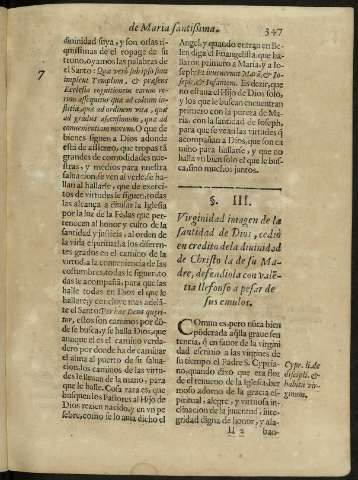 de Maria santissima.
347
diuinidad suya, y son orlas ri-
quissimas de el ropage de su
trono. oyamos las palabras de
el Santo: Quæ verò sub ipso sunt
7
implent Templum, & præsens
Ecclesia cognitionem earum re-
rum assequitur quæ ad cultum ius-
titiæ, quæ ad ordinem vitæ, quæ
ad gradus ascensionum, quæ ad
conuenientiam morum. O que de
bienes siguen a Dios adonde
està de assiento, que tropas tã
grandes de comodidades nues-
tras, y medios para nuestra
saluacion se ven al verle, se ha-
llan al hallarse, que de exerci-
tos de virtudes le siguen, todas
las alcança a la Iglesia
por la luz de la Fè, las que per-
tenecen al honor y culto de la
santidad y justicia, al orden de
la vida espiritual, a los diferen-
tes grados en el camino de la
virtud, a la conueniencia de las
costumbres, todas le siguen, to
das le acompañã, para que las
halle todas en Dios el que le
hallare, y concluye mas adelã-
te el Santo: Per hæc Deus quæri-
tur, estos son caminos por dõ-
de se busca, y se halla Dios, que
aunque el es el camino verda-
dero por donde ha de caminar
el alma al puerto de su salua-
cion, los caminos de las virtu-
des le siruen de la mano, para
que le halle. Cosa rara es, que
busquen los Pastores al Hijo de
Dios rezien nacido, y en vn pe
sebre, como se lo auia dicho el
Angel, y quando entran en Be-
len dize el Euangelista, que ha-
llaron primero a Maria, y a Io-
seph: Et inuenerunt Mariã, & Io-
seph, & Infantem. Es dezir, que
no estaua el Hijo de Dios solo,
y los que le buscan encuentran
primero con la pureza de Ma-
ria, con la santidad de Ioseph,
para que se vean las virtudes q̃
acompañan a Dios, que son ca
mino para hallarle, y que no
halla vn bien solo el que le bus-
ca, sino muchos juntos.
§. III.
Virginidad imagen de la
santidad de Dios, cediò
en credito de la diuinidad
de Christo la de su Ma-
dre, defendiola con valẽ-
tia Ilefonso a pesar de
sus emulos.
COmun es, pero nũca bien
põderada aq̃lla graue sen
tencia, q̃ en fauor de la virgini
dad escriuio a las virgines de
su tiempo el Padre S. Cypria-
no, quando dixo que era flor
de el renueuo de la Iglesia, her
moso adorno de la gracia es-
piritual, alegre, y virtuosa in-
clinacion de la juuentud, inte-
gridad digna de honor, y ala-
Cypr. li. de
discipli. &
habitu vir-
ginum.
ban-